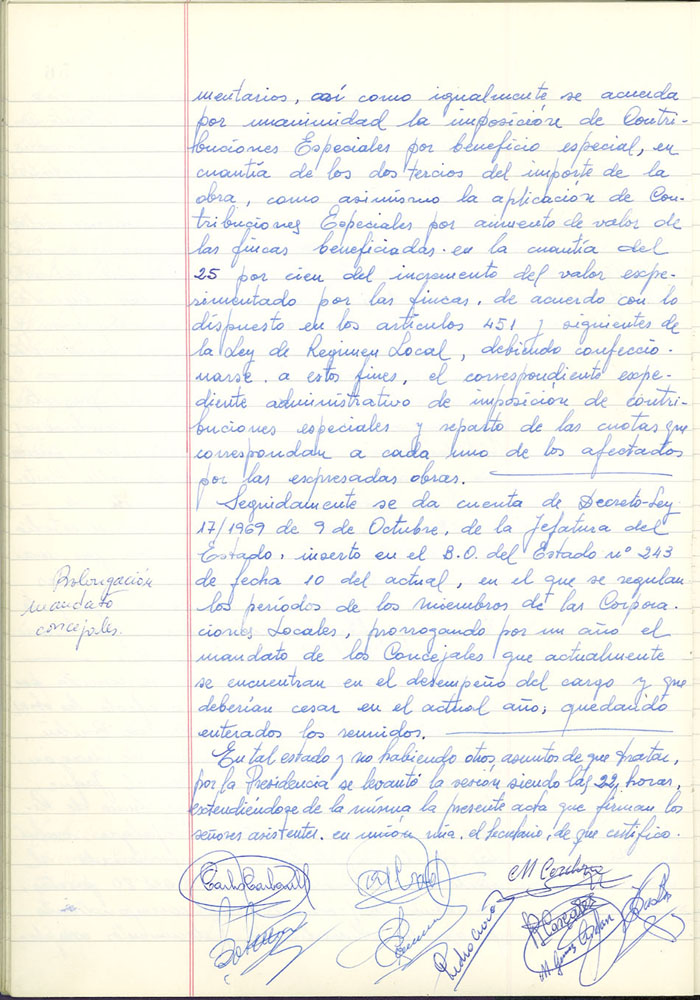 mentarios, así como igualmente se acuerda
por unanimidad la imposición de Contri-
buciones Especiales por beneficio especial, en
cuantía de los dos tercios del importe de la
obra, como asimismo la aplicación de Con-
tribuciones Especiales por aumento de valor de
las fincas beneficiadas. en la cuantía del
25 por cien del incremento del valor expe-
rimentado por las fincas, de acuerdo con lo
dispuesto en los artículos 451 y siguientes de
la Ley de Regimen Local, debiendo confeccio-
narse. a estos fines, el correspondiente expe-
diente administrativo de imposición de contri-
buciones especiales y reparto de las cuotas que
correspondan a cada uno de los afectados
por las expresadas obras.
Seguidamente se da cuenta de Decreto-Ley
17/1969 de 9 de Octubre, de la Jefatura del
Estado, inserto en el B.O. del Estado nº 243
de fecha 10 del actual, en el que se regulan
los períodos de los miembros de las Corpora-
ciones Locales, prorrogando por un año el
mandato de los Concejales que actualmente
se encuentran en el desempeño del cargo y que
deberían cesar en el actual año; quedando
enterados los reunidos.
Prolongación
mandato
concejales.
En tal estado y no habiendo otros asuntos de que tratar,
por la Presidencia se levantó la sesión siendo las 22, horas,
extendiéndose de la misma la presente acta que firman los
señores asistentes. en unión mia. el Secretario, de que certifico.
Carlos Carbonell
M Cordova
Pedro